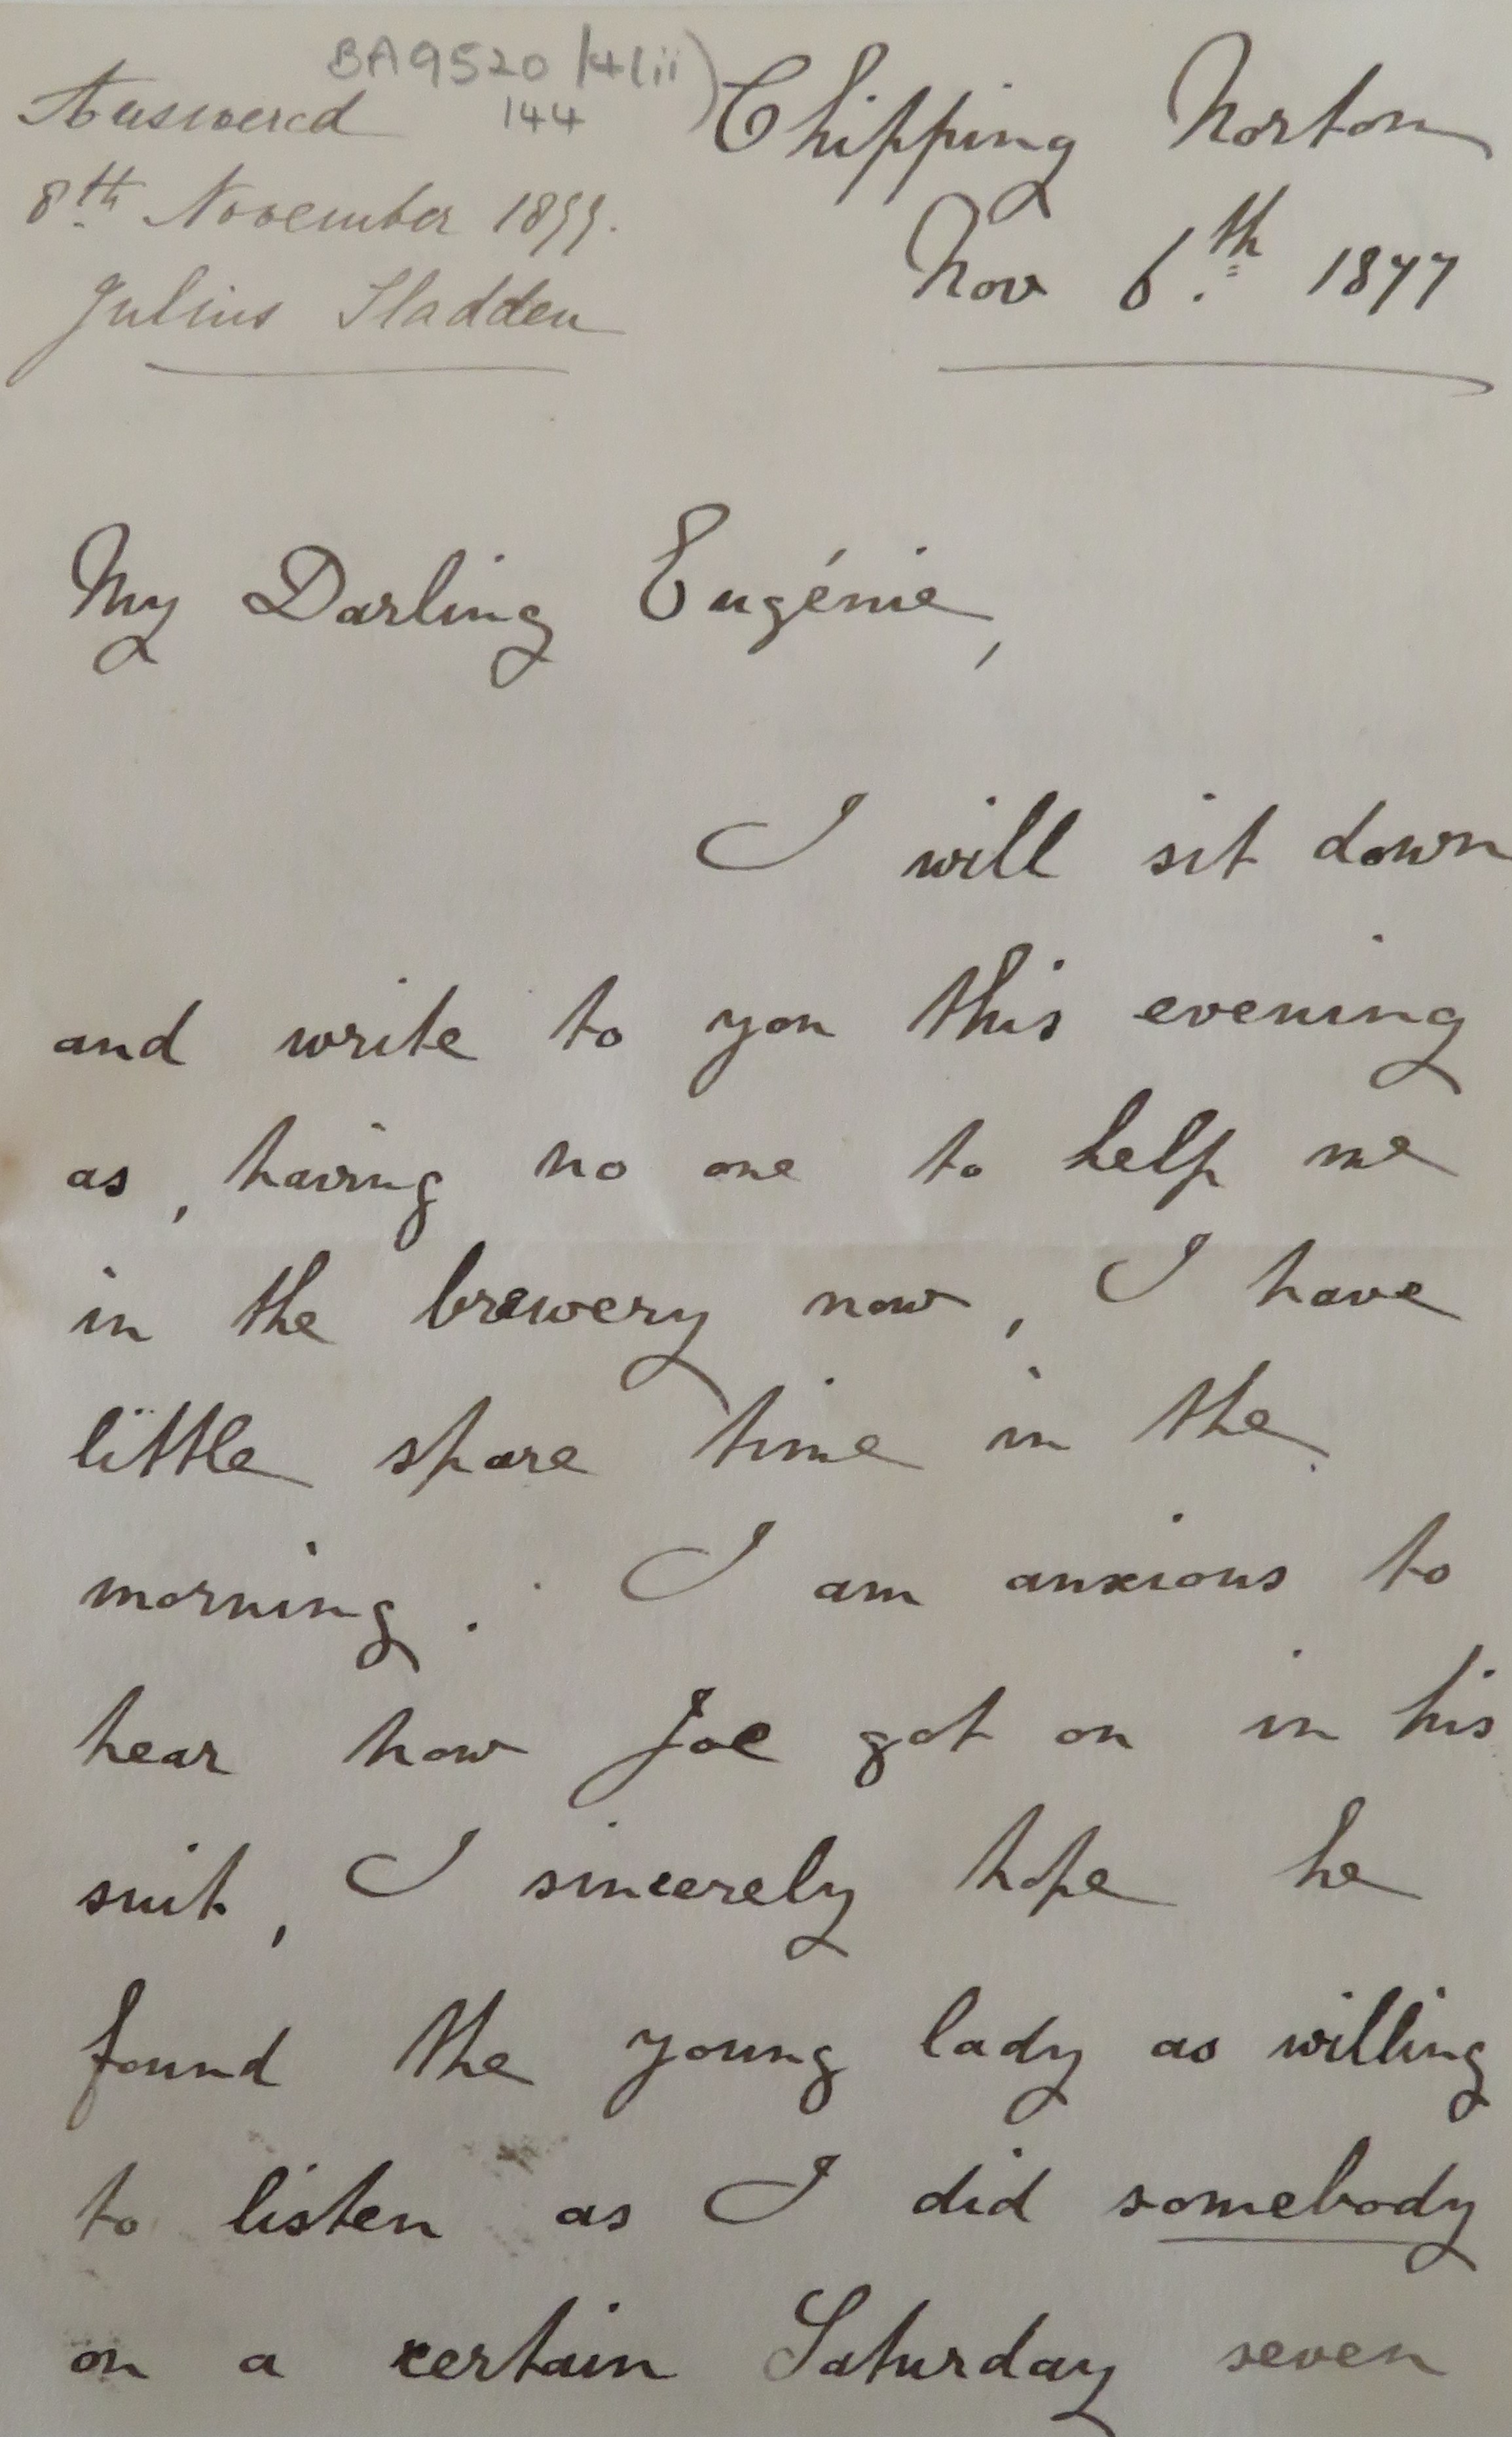 BA9520/4(ii)
144
Answered
8th November 1877.
Julius Sladden
Chipping Norton
Nov 6.th 1877
My Darling Eugénie,
I will sit down
and write to you this evening
as, having no one to help me
in the brewery now, I have
little spare time in the
morning. I am anxious to
hear how Joe got on in his
suit, I sincerely hope he
found the young lady as willing
to listen as I did somebody
on a certain Saturday seven